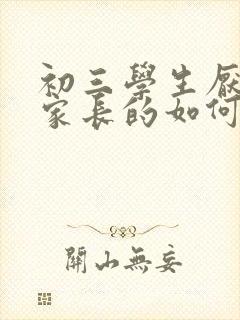 初三學生厭
家長的如何
開山無妄